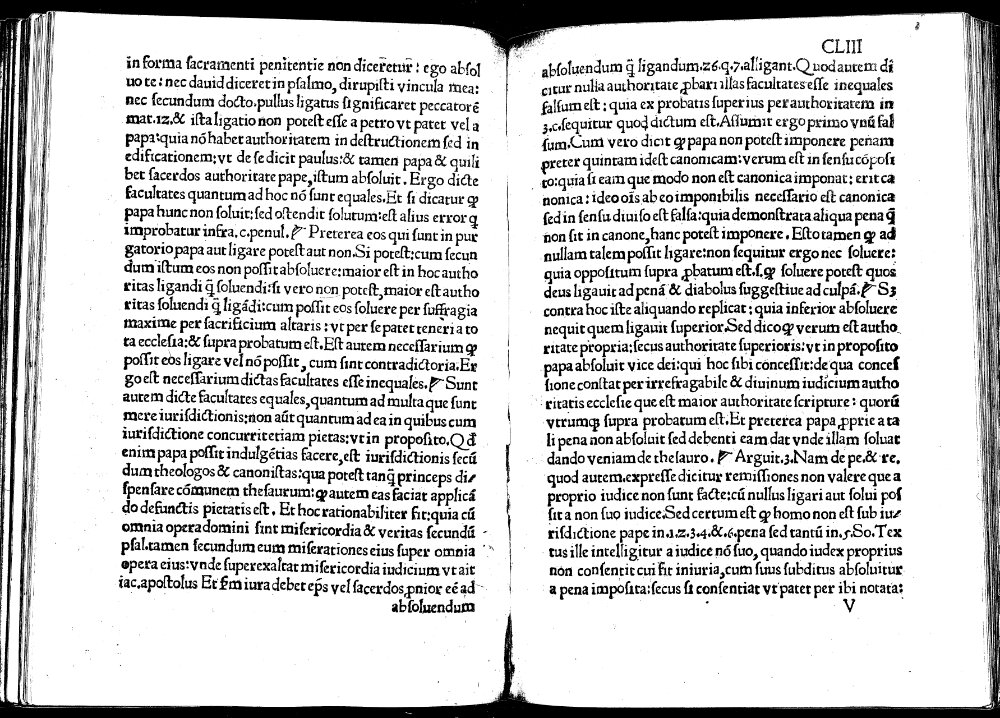 in forma sacramenti penitentie non diceretur: ego absol
uo te: nec dauid diceret in psalmo, dirupisti vincula mea:
nec secundum docto. pullus ligatus significaret peccatorē
mat.12.& ista ligatio non potest esse a petro vt patet vel a
papa: quia nō habet authoritatem in destructionem sed in
edificationem: vt de se dicit paulus: & tamen papa & quili
bet sacerdos authoritate pape, istum absoluit. Ergo dicte
facultates quantum ad hoc nō sunt equales. Et si dicatur ꝙ
papa hunc non soluit: sed ostendit solutum: est alius error q̄
improbatur infra.c.penul. Preterea eos qui sunt in pur
gatorio papa aut ligare potest aut non. Si potest: cum secun
dum istum eos non possit absoluere: maior est in hoc autho
ritas ligandi q̄ soluendi: si vero non potest, maior est autho
ritas soluendi q̄ ligādi: cum possit eos soluere per suffragia
maxime per sacrificium altaris: vt per se patet teneri a to
ta ecclesia: & supra probatum est. Est autem necessarium ꝙ
possit eos ligare vel nō possit, cum sint contradictoria. Er
go est necessarium dictas facultates esse inequales. Sunt
autem dicte facultates equales, quantum ad multa que sunt
mere iurisdictionis: non aūt quantum ad ea in quibus cum
iurisdictione concurrit etiam pietas: vt in proposito. Qd̄
enim papa possit indulgētias facere, est iurisdictionis secū
dum theologos & canonistas: qua potest tanq̄ princeps di
spensare cōmunem thesaurum: ꝙ autem eas faciat applicā
do defunctis pietatis est. Et hoc rationabiliter fit: quia cū
omnia opera domini sint misericordia & veritas secundū
psal. tamen secundum eum miserationes eius super omnia
opera eius: vnde superexaltat misericordia iudicium vt ait
iac. apostolus Et fm̄ iura debet ep̄s vel sacerdos, ꝓnior eē ad
absoluendum
CLIII
absoluendum q̄ ligandum.26.q.7.alligant. Quod autem di
citur nulla authoritate ꝓbari illas facultates esse inequales
falsum est: quia ex probatis superius per authoritatem in
3.c. sequitur quod dictum est. Assumit ergo primo vnū fal
sum. Cum vero dicit ꝙ papa non potest imponere penam
preter quintam idest canonicam: verum est in sensu cōposi
to: quia si eam que modo non est canonica imponat: erit ca
nonica: ideo oīs ab eo imponibilis necessario est canonica
sed in sensu diuiso est falsa: quia demonstrata aliqua pena q̄
non sit in canone, hanc potest imponere. Esto tamen ꝙ ad
nullam talem possit ligare: non sequitur ergo nec soluere:
quia oppositum supra ꝓbatum est.s.ꝙ soluere potest quos
deus ligauit ad penā & diabolus suggestiue ad culpā. S3
contra hoc iste aliquando replicat: quia inferior absoluere
nequit quem ligauit superior. Sed dico ꝙ verum est autho
ritate propria: secus authoritate superioris: vt in proposito
papa absoluit vice dei: qui hoc sibi concessit: de qua conces
sione constat per irrefragabile & diuinum iudicium autho
ritatis ecclesie que est maior authoritate scripture: quorū
vtrumq; supra probatum est. Et preterea papa, ꝓprie a ta
li pena non absoluit sed debenti eam dat vnde illam soluat
dando veniam de thesauro. Arguit.3. Nam de pe.& re.
quod autem. expresse dicitur remissiones non valere que a
proprio iudice non sunt facte: cū nullus ligari aut solui pos
sit a non suo iudice. Sed certum est ꝙ homo non est sub iu
risdictione pape in.1.2.3.4.&.6.pena sed tantū in.5. So. Tex
tus ille intelligitur a iudice nō suo, quando iudex proprius
non consentit cui fit iniuria, cum suus subditus absoluitur
a pena imposita: secus si consentiat vt patet per ibi notata:
V